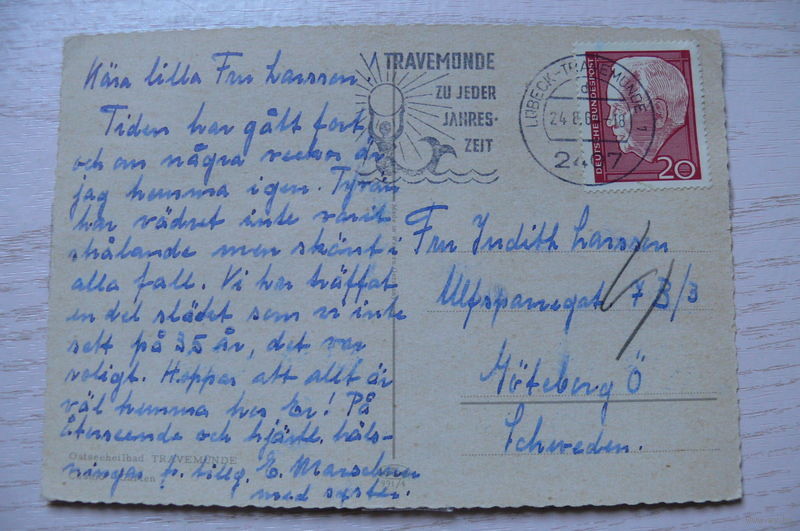 Kära lilla Fru Larsson.
Tiden har gått fort,
och om några veckor är
jag hemma igen. Tyvärr
har vädret inte varit
strålande men skönt i
alla fall. Vi har träffat
en del släckt som vi inte
sett på 35 år, det var
roligt. Hoppas att allt är
väl hemma hos Er! På
återseende och hjärtl. häls-
ningar fr. tillg. E. Marschner
med syster.
Ostseeheilbad TRAVEMÜNDE
TRAVEMÜNDE
ZU JEDER
JAHRES-
ZEIT
LÜBECK-TRAVEMÜNDE 1
d
24.8.6 -18
24 7
DEUTSCHE BUNDESPOST
20
Fru Judith Larsson
Ulfsparregat. 7 B/3
Göteborg Ö
Schweden.